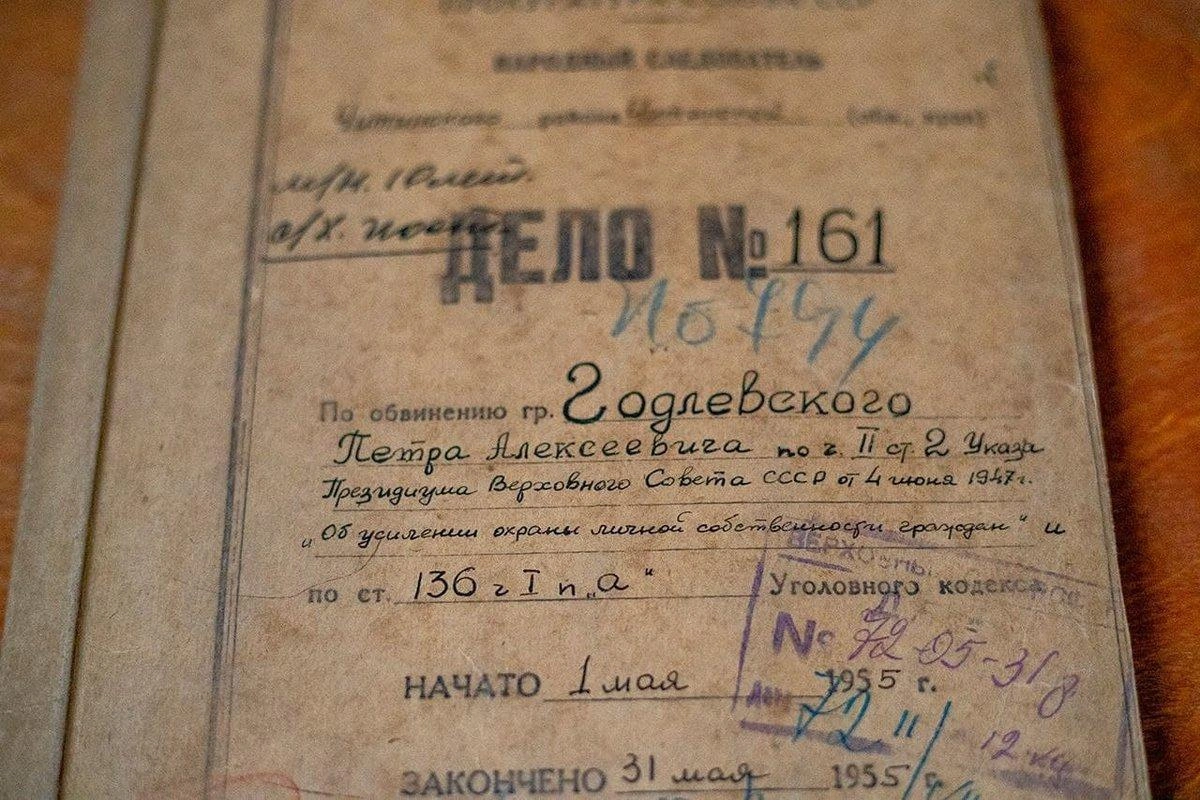 ПРОКУРАТУРА СОЮЗА ССР
НАРОДНЫЙ СЛЕДОВАТЕЛЬ
Читинского района Читинской (обл., края)
ДЕЛО № 161
По обвинению гр. Годлевского
Петра Алексеевича по ч. II ст. 2 Указа
Президиума Верховного Совета СССР от 4 июня 1947г.
„Об усилении охраны личной собственности граждан“ и
по ст. 136 ч I п „а“ Уголовного кодекса
№ 72-05-31
НАЧАТО 1 мая 1955 г.
ЗАКОНЧЕНО 31 мая 1955 г.